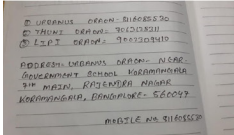 ① URBANUS ORAON - 8116085530
② THUNI ORAON =
③ LIPI ORAON = 9002309410
ADDRESS - URBANUS ORAON - NEAR
GOVERNMENT SCHOOL KORAMANGALA
7TH MAIN, RAJENDRA NAGAR
KORAMANGALA, BANGALORE - 560047
MOBILE NO 8116085530